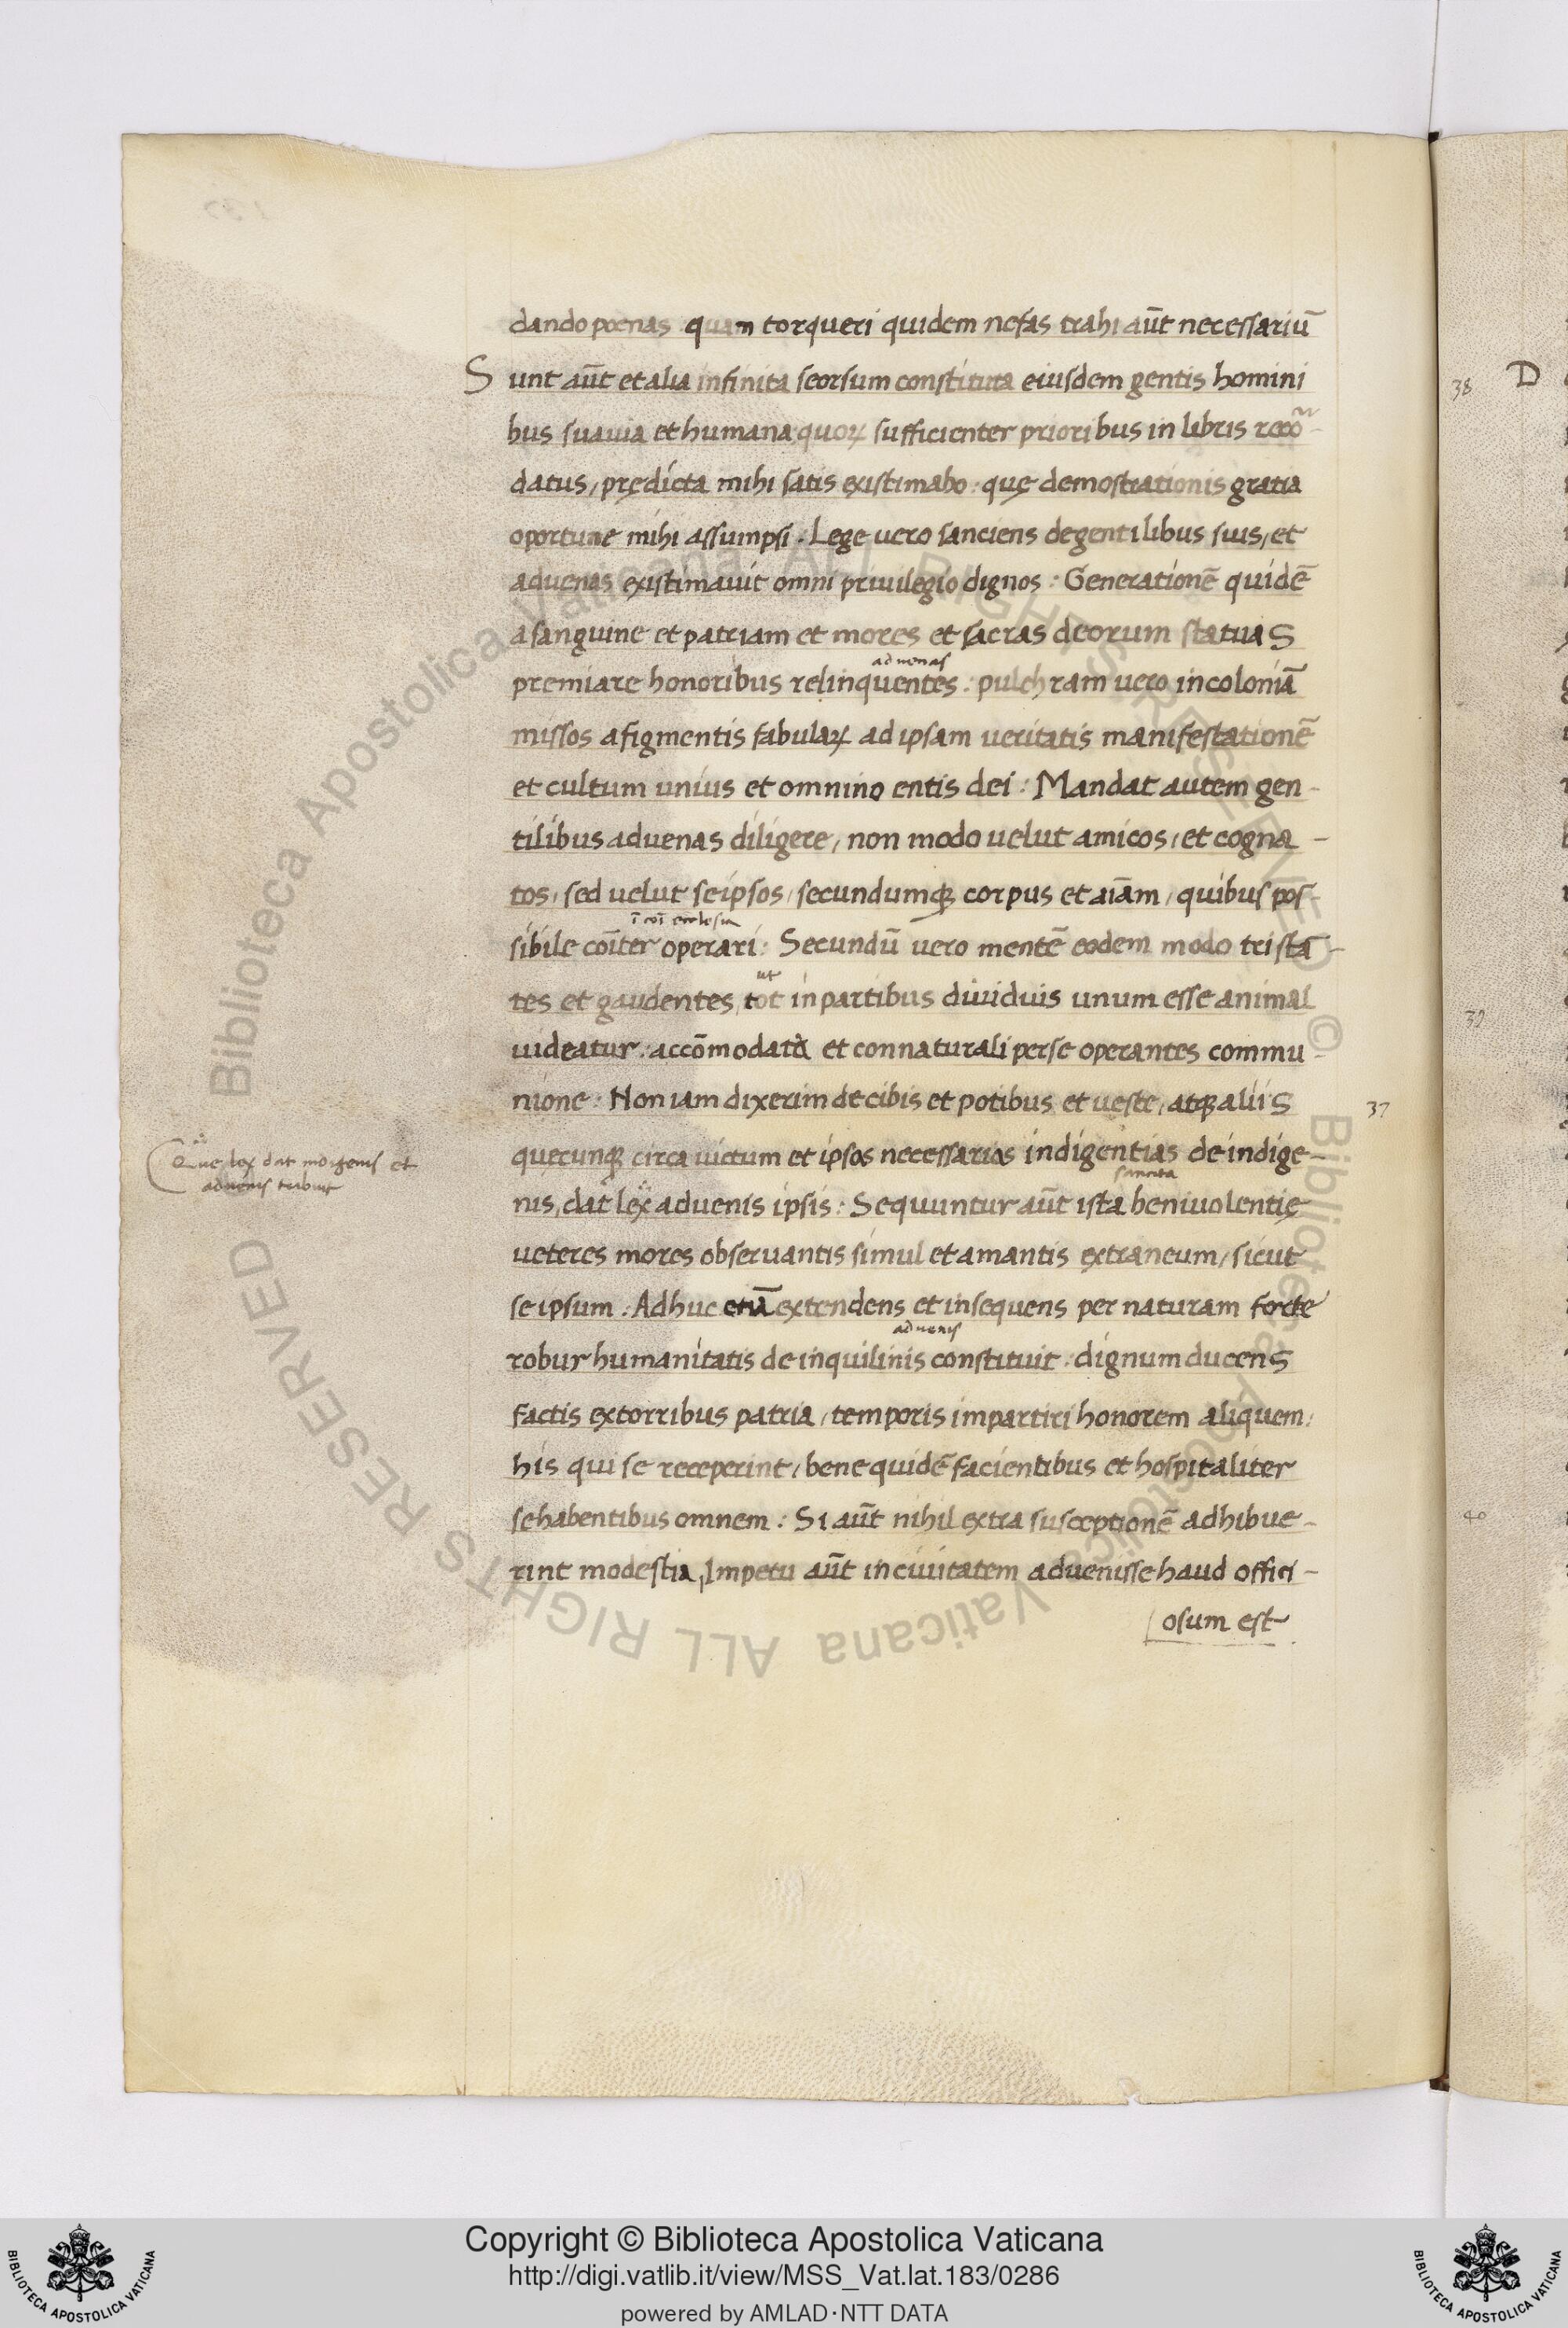 dando poenas quam torqueri quidem nefas trahi aūt necessariū
Sunt aūt et alia infinita seorsum constituta eiusdem gentis homini
bus suauia et humana: quoꝝ sufficienter prioribus in libris
datus, prędicta mihi satis existimabo: quę demostrationis gratia
oportune mihi assumpsi. Lege uero sanciens de gentilibus suis, et
aduenas existimauit omni priuilegio dignos: Generationē quidē
a sanguine et patriam et mores et sacras deorum statuas
aduenas
premiare honoribus relinquentes: pulchram uero in coloniā
missos a figmentis fabulaꝝ ad ipsam ueritatis manifestationē
et cultum unius et omnino entis dei: Mandat autem gen-
tilibus aduenas diligere, non modo uelut amicos, et cogna-
tos, sed uelut se ipsos, secundumqꝫ corpus et aīam, quibus pos-
ī coī ecclesia
sibile coīter operari: Secundū uero mentē eodem modo tristā-
ut
tes et gaudentes, tot in partibus diuiduis unum esse animal
uideatur: accōmodata et connaturali per se operantes commu-
nione: Non iam dixerim de cibis et potibus et ueste, atqꝫ aliis
37
quecunqꝫ circa uictum et ipsos necessarios indigentias de indige-
Que lex dat indigenis et
aduenis tribuit
sancita
nis, dat lex aduenis ipsis: Sequuntur aūt ista beniuolentię
ueteres mores obseruantis simul et amantis extraneum, sicut
se ipsum: Adhuc etiā extendens et insequens per naturam forte
aduenis
robur humanitatis de inquilinis constituit: dignum ducens
factis extorribus patria, temporis impartiri honorem aliquem,
his qui se receperint, bene quidē facientibus et hospitaliter
se habentibus omnem: Si aūt nihil extra susceptionē adhibue-
rint modestia, Impetu aūt in ciuitatem aduenisse haud offici-
osum est
38
D
39
40
Biblioteca Apostolica Vaticana ALL RIGHTS RESERVED © Biblioteca Apostolica Vaticana ALL RIGHTS RESERVED
Copyright © Biblioteca Apostolica Vaticana
http://digi.vatlib.it/view/MSS_Vat.lat.183/0286
powered by AMLAD·NTT DATA
BIBLIOTECA APOSTOLICA VATICANA
BIBLIOTECA APOSTOLICA VATICANA